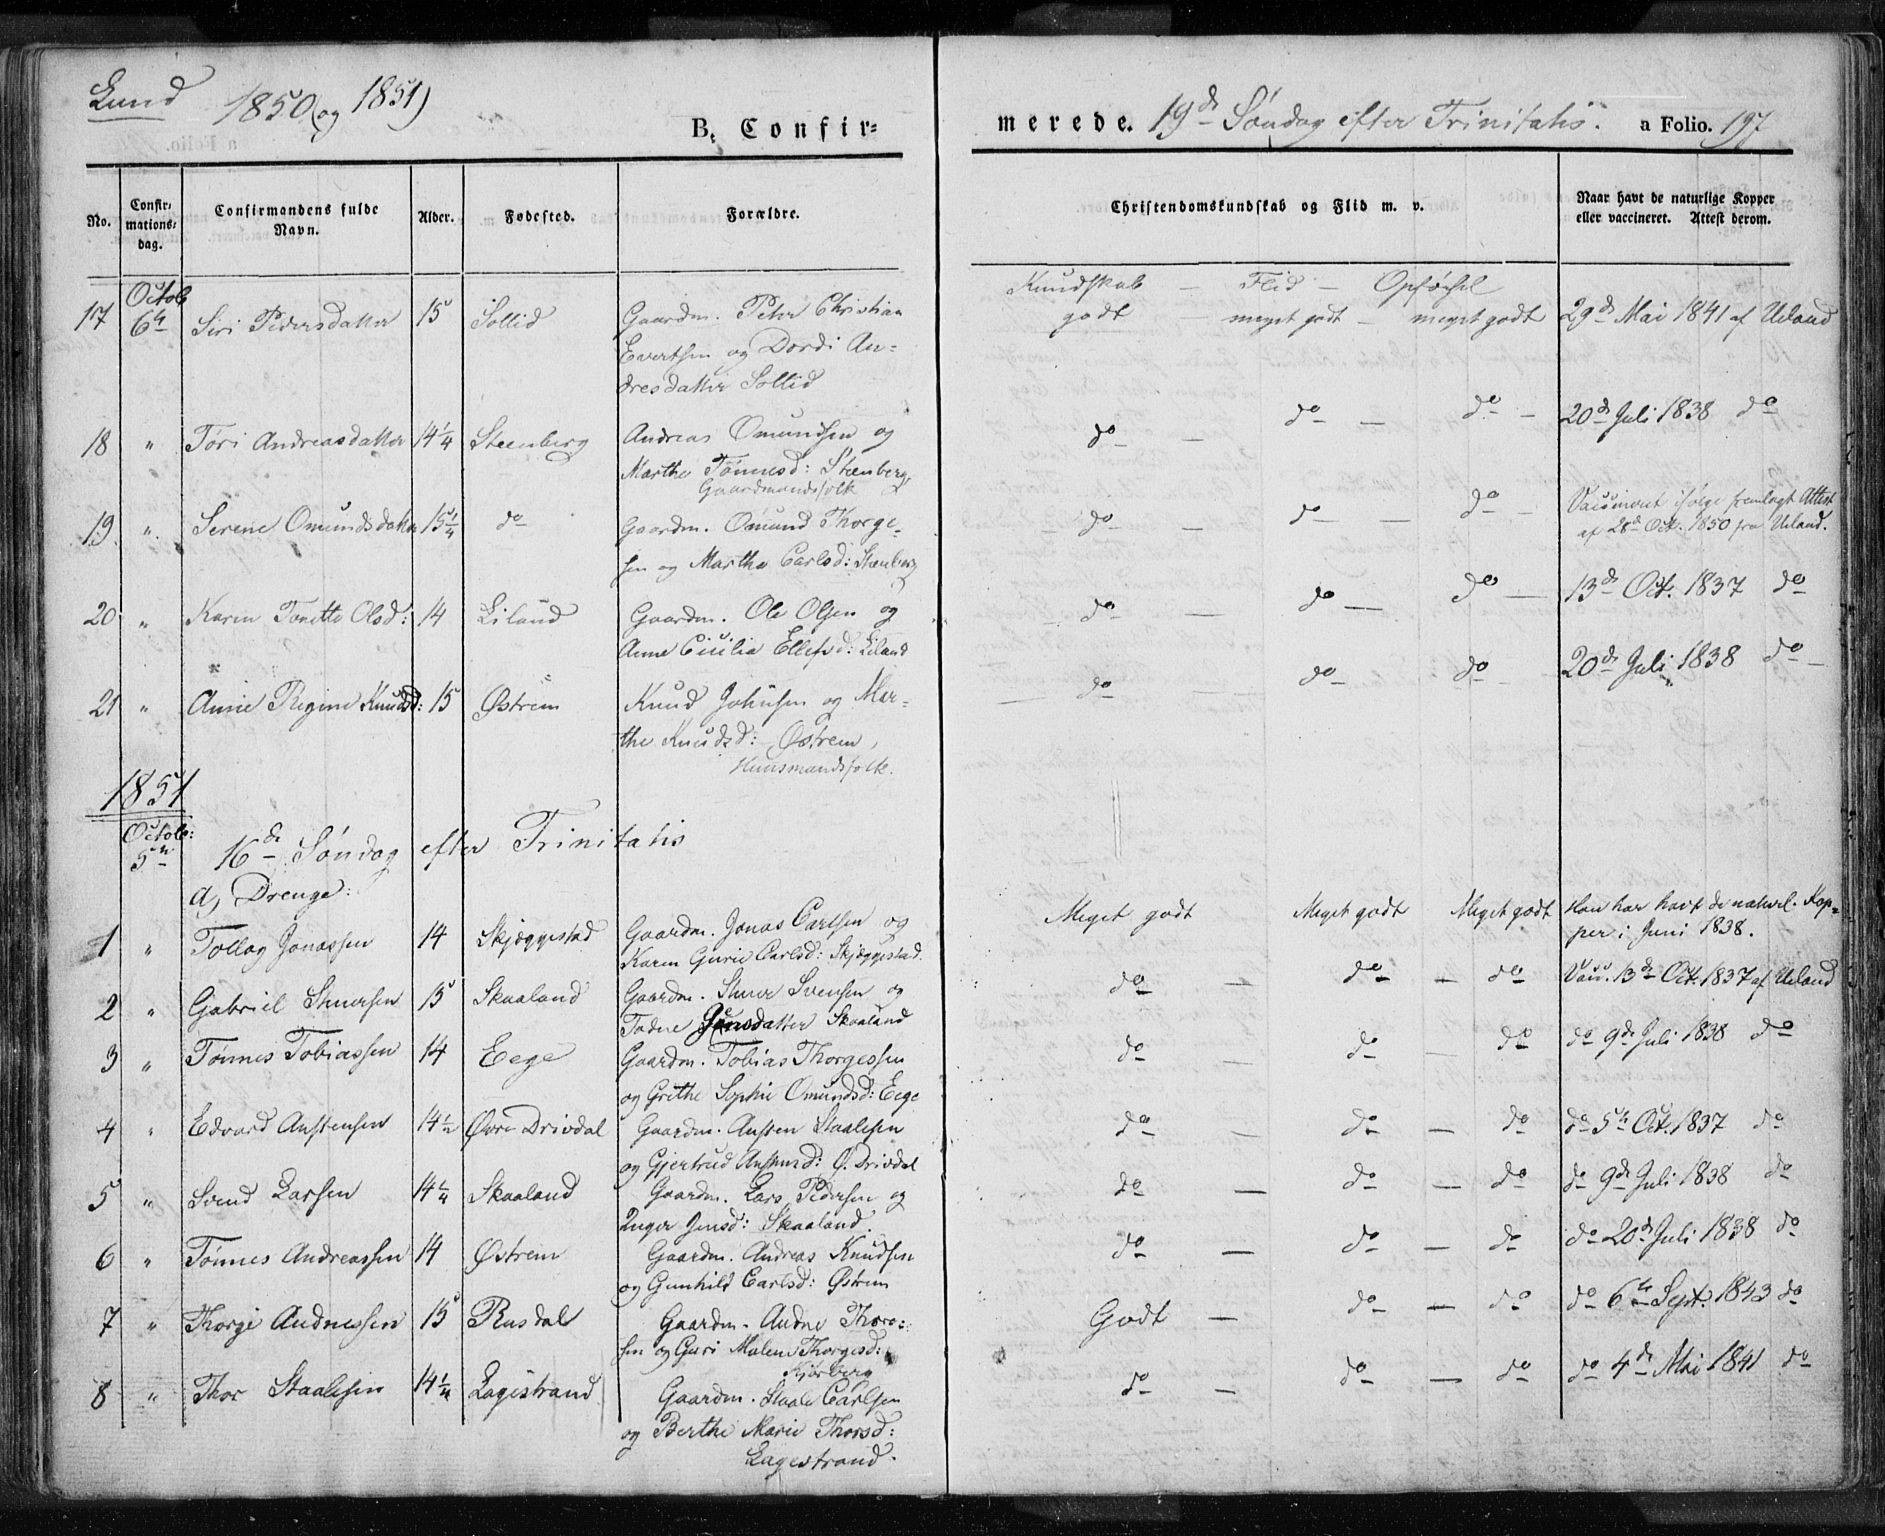 Lund 1850 (og 1851)
B. Confir=
merede. 19de Søndag efter Trinitatis. a Folio. 197
No. Confir=mations=dag. Confirmandens fulde Navn. Alder. Fødested. Forældre. Christendomskundskab og Flid m. v. Naar havt de naturlige Kopper eller vaccineret. Attest derom.
Kundskab — Flid — Opførsel
17 Octob 6te Siri Pedersdatter 15 Sollid Gaardm. Peter Christian godt meget godt — meget godt 29de Mai 1841 af Ueland
Evertsen og Dordi An=
dresdatter Sollid
18 " Tøri Andreasdatter 14¼ Steenberg Andreas Omundsen og do — do — do — 20de Juli 1838 do
Marthe Tønnesd: Steenberg,
Gaardmandsfolk
19. " Serene Omundsdatter 15¼ do Gaardm. Omund Thorge= do — do — do — Vaccineret ifølge fremlagt Attest
af 28de Oct. 1850 fra Ueland.
sen og Marthe Carlsd: Steenberg
20 " Karen Tonette Olsd: 14 Eiland Gaardm. Ole Olsen og do — do — do — 13de Oct. 1837 do
Anne Cicilia Ellefsd: Eiland
21 " Anne Regine Knudsd: 15 Østrem Knud Johnsen og Mar= do — do do 20de Juli 1838 do —
the Knudsd: Østrem,
Huusmandsfolk.
1851
Octob: 5te 16de Søndag efter Trinitatis
a) Drenge:
1 " Tollag Jonassen 14 Skjæggestad Gaardm. Jonas Carlsen og Meget godt Meget godt Meget godt Han har havt de naturl. Kop=
Karen Gurie Carlsd: Skjæggestad. per i Juni 1838.
2 " Gabriel Stuersen 15 Skaaland Gaardm. Stuer Svensen og do — do — do Vacc. 13de Oct. 1837 af Ueland
Tadne Jensdatter Skaaland
3 " Tønnes Tobiassen 14 Eege Gaardm. Tobias Thorgessen do — do — do do 9de Juli 1838 do
og Grethe Sophie Omundsd: Eege
4 " Edvard Austensen 14½ Øvre Drivdal Gaardm. Austen Staalesen do — do — do do 5te Oct. 1837 do
og Gjertrud Austensd: Ø. Drivdal
5 " Svend Larsen 14¼ Skaaland Gaardm. Lars Pedersen og do — do — do do 9de Juli 1838 do
Inger Jensd: Skaaland.
6 " Tønnes Andreassen 14 Østrem Gaardm. Andreas Knudsen do — do — do do 20de Juli 1838 do
og Gunhild Carlsd: Østrem
7 " Thorge Audnessen 15 Rusdal Gaardm. Audne Thoro= Godt — do — do do 6te Sept. 1843 do
sen og Guri Malene Thorgesd:
8 " Thor Staalesen 14¼ Lagestrand Gaardm. Staale Carlsen do — do — do do 4de Mai 1841 do
og Berthe Marie Thorsd:
Lagestrand.